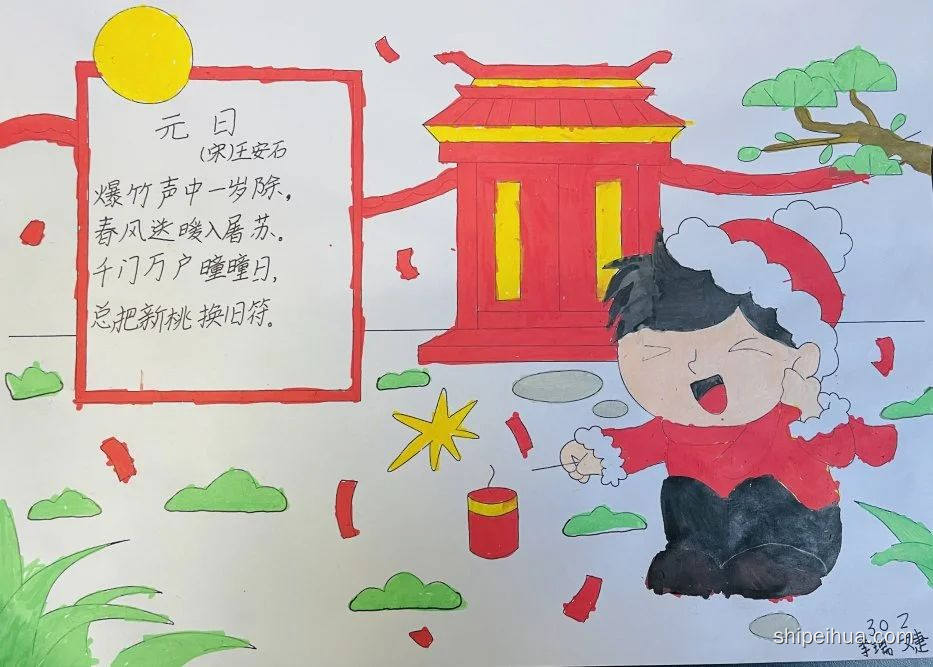 元日
(宋)王安石
爆竹声中一岁除，
春风送暖入屠苏。
千门万户曈曈日，
总把新桃换旧符。
302
shipeihua.com